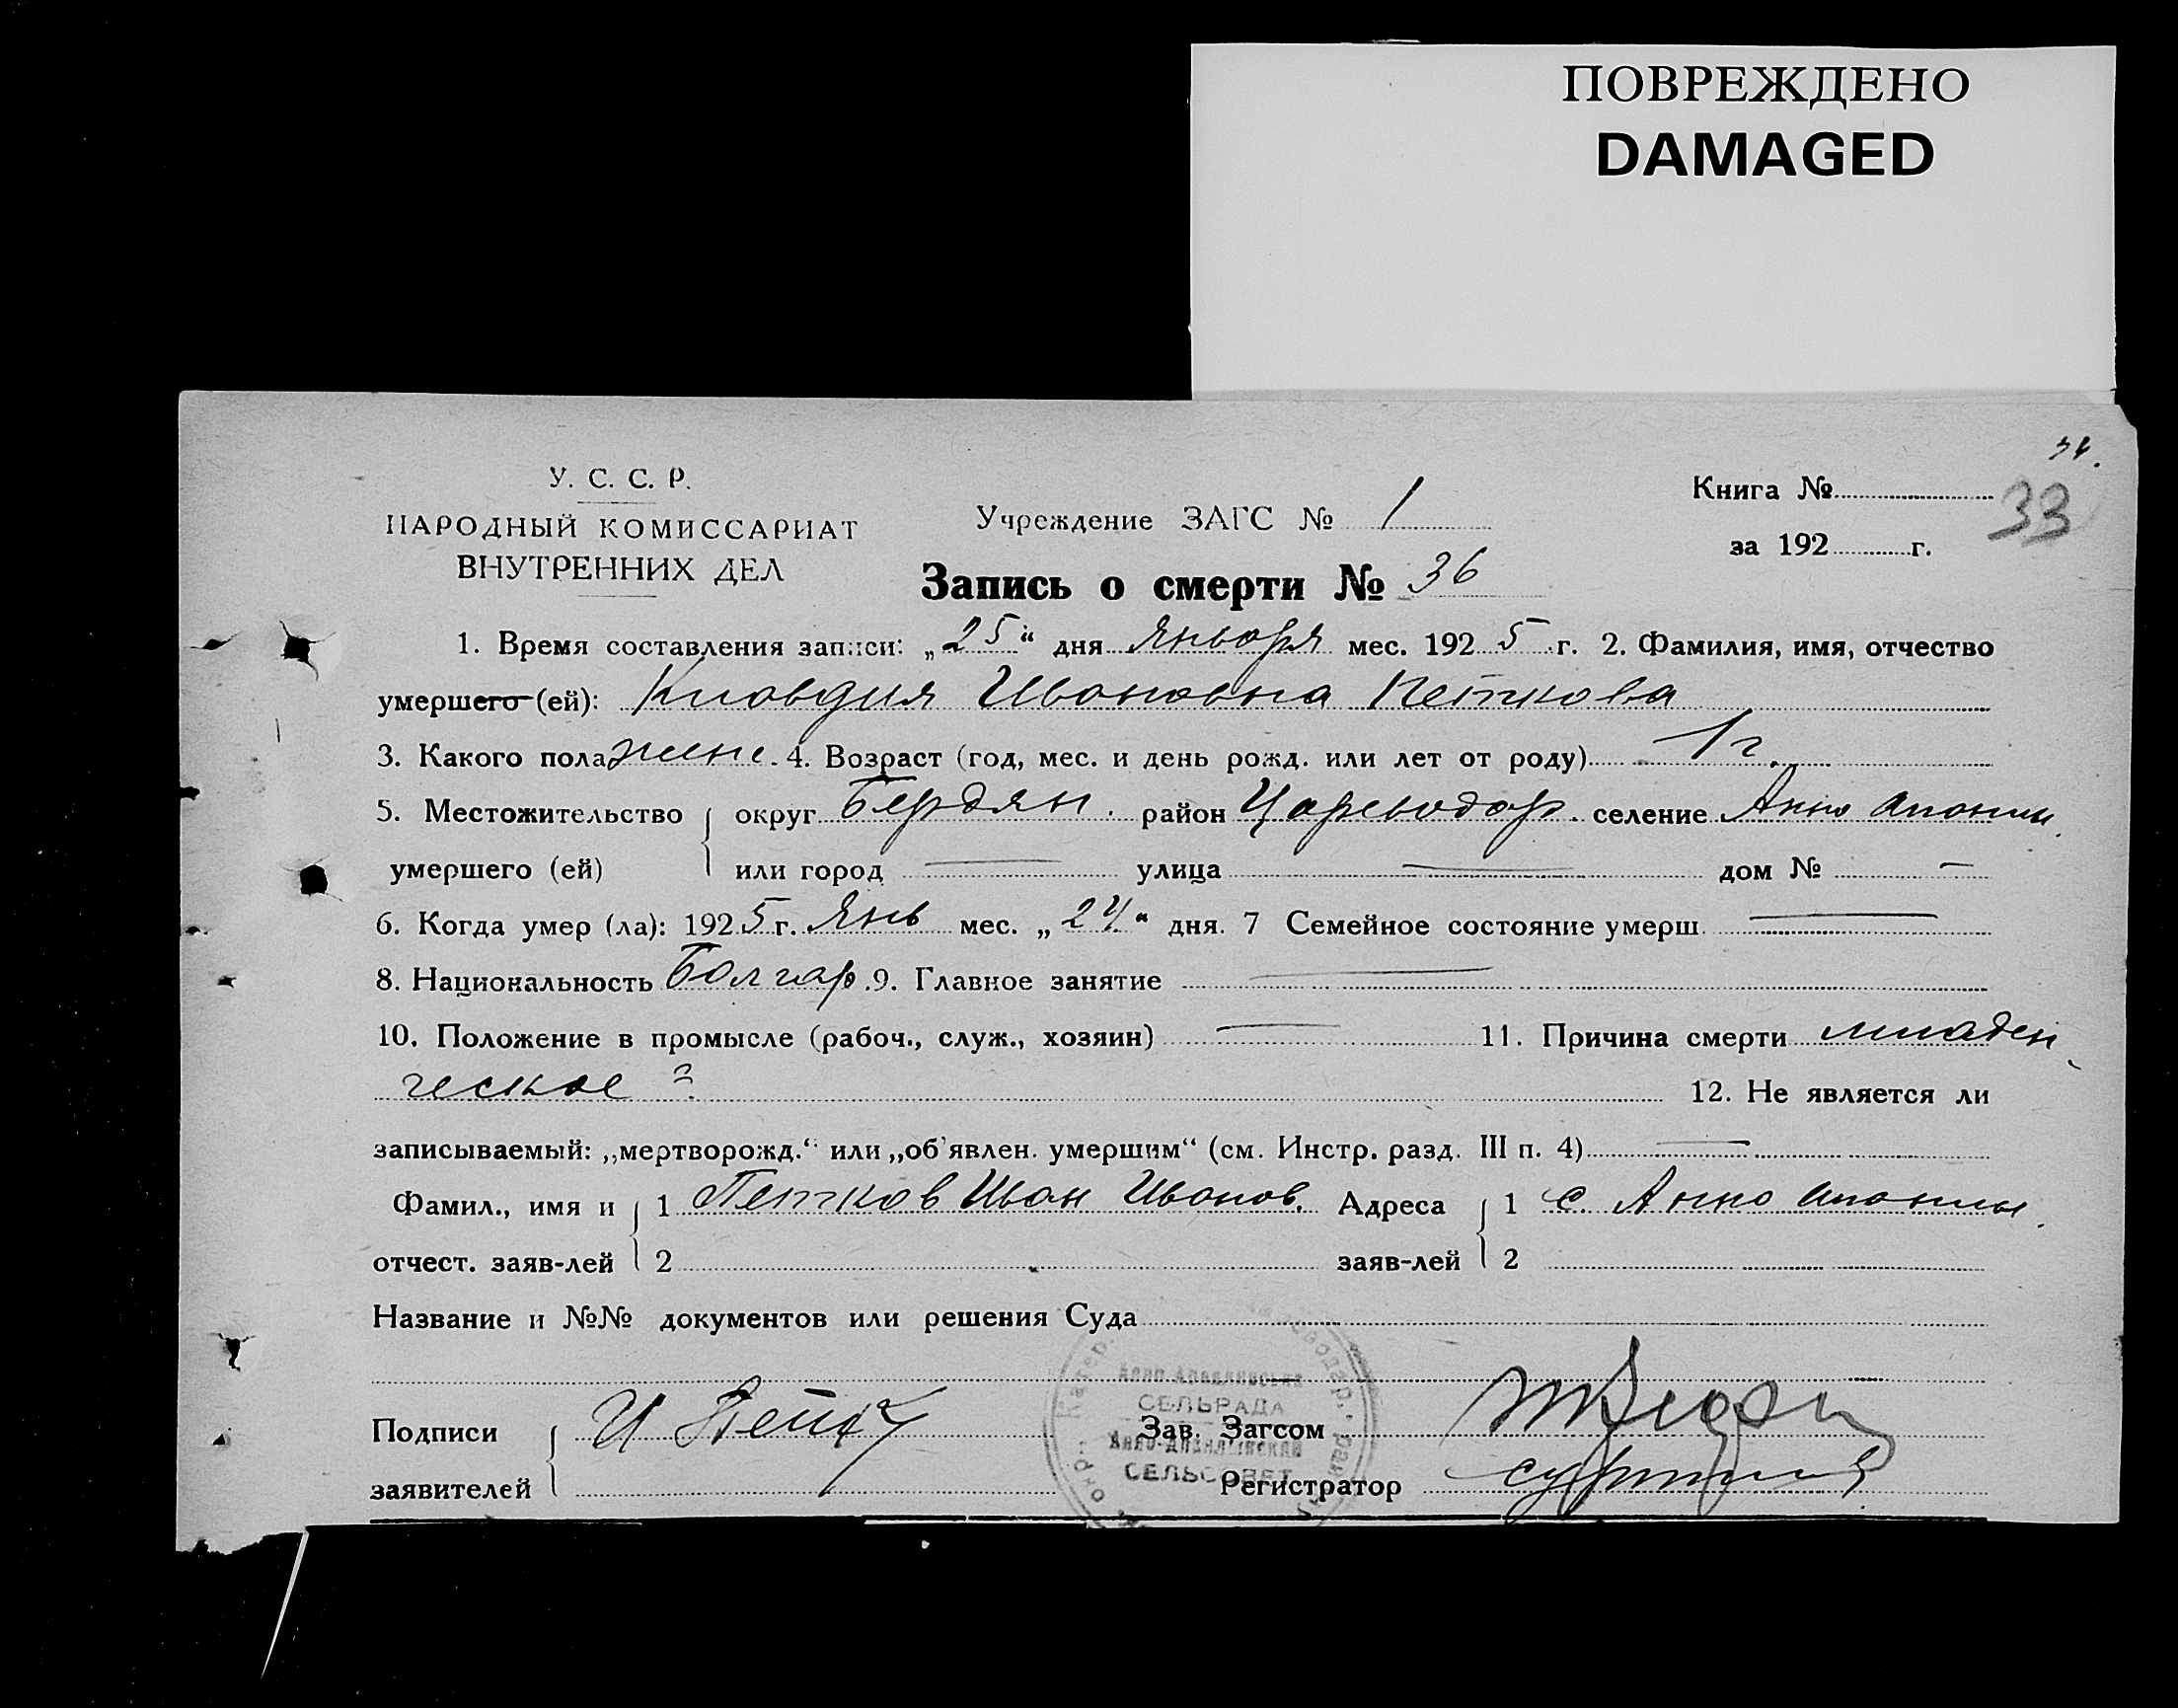 ПОВРЕЖДЕНО
DAMAGED
У. С. С. Р.
НАРОДНЫЙ КОМИССАРИАТ
ВНУТРЕННИХ ДЕЛ
Учреждение ЗАГС № 1
Книга №
33
за 192 г.
Запись о смерти № 36
1. Время составления записи: „25“ дня Января мес. 1925 г. 2. Фамилия, имя, отчество
умершего (ей): Клавдия Ивановна Петкова
3. Какого пола женс. 4. Возраст (год, мес. и день рожд. или лет от роду) 1 г.
5. Местожительство округ Бердян. район Цареводар. селение Анно Апонин.
умершего (ей) или город — улица — дом № —
6. Когда умер (ла): 1925 г. Янв мес. „24“ дня. 7 Семейное состояние умерш. —
8. Национальность Болгар. 9. Главное занятие —
10. Положение в промысле (рабоч., служ., хозяин) — 11. Причина смерти младен
ческое ? 12. Не является ли
записываемый: „мертворожд.“ или „об'явлен. умершим“ (см. Инстр. разд. III п. 4) —
Фамил., имя и 1 Петков Иван Иванов. Адреса 1 с. Анно
отчест. заяв-лей 2 заяв-лей 2
Название и №№ документов или решения Суда
СЕЛЬРАДА
Подписи И Петк Зав. Загсом
СЕЛЬСОВЕТ
заявителей Регистратор